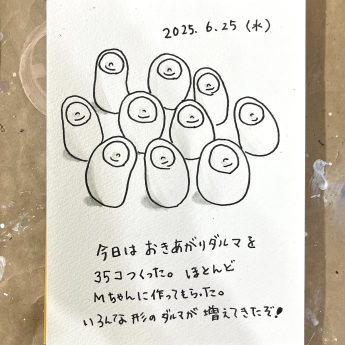 2025. 6.25 (水)
今日は おきあがりダルマを
35コつくった。ほとんど
Mちゃんに作ってもらった。
いろんな形のダルマが 増えてきたぞ!